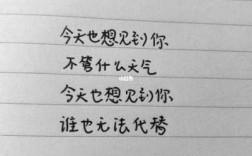 今天也想见到你
不管什么天气
今天也想见到你
谁也无法代替